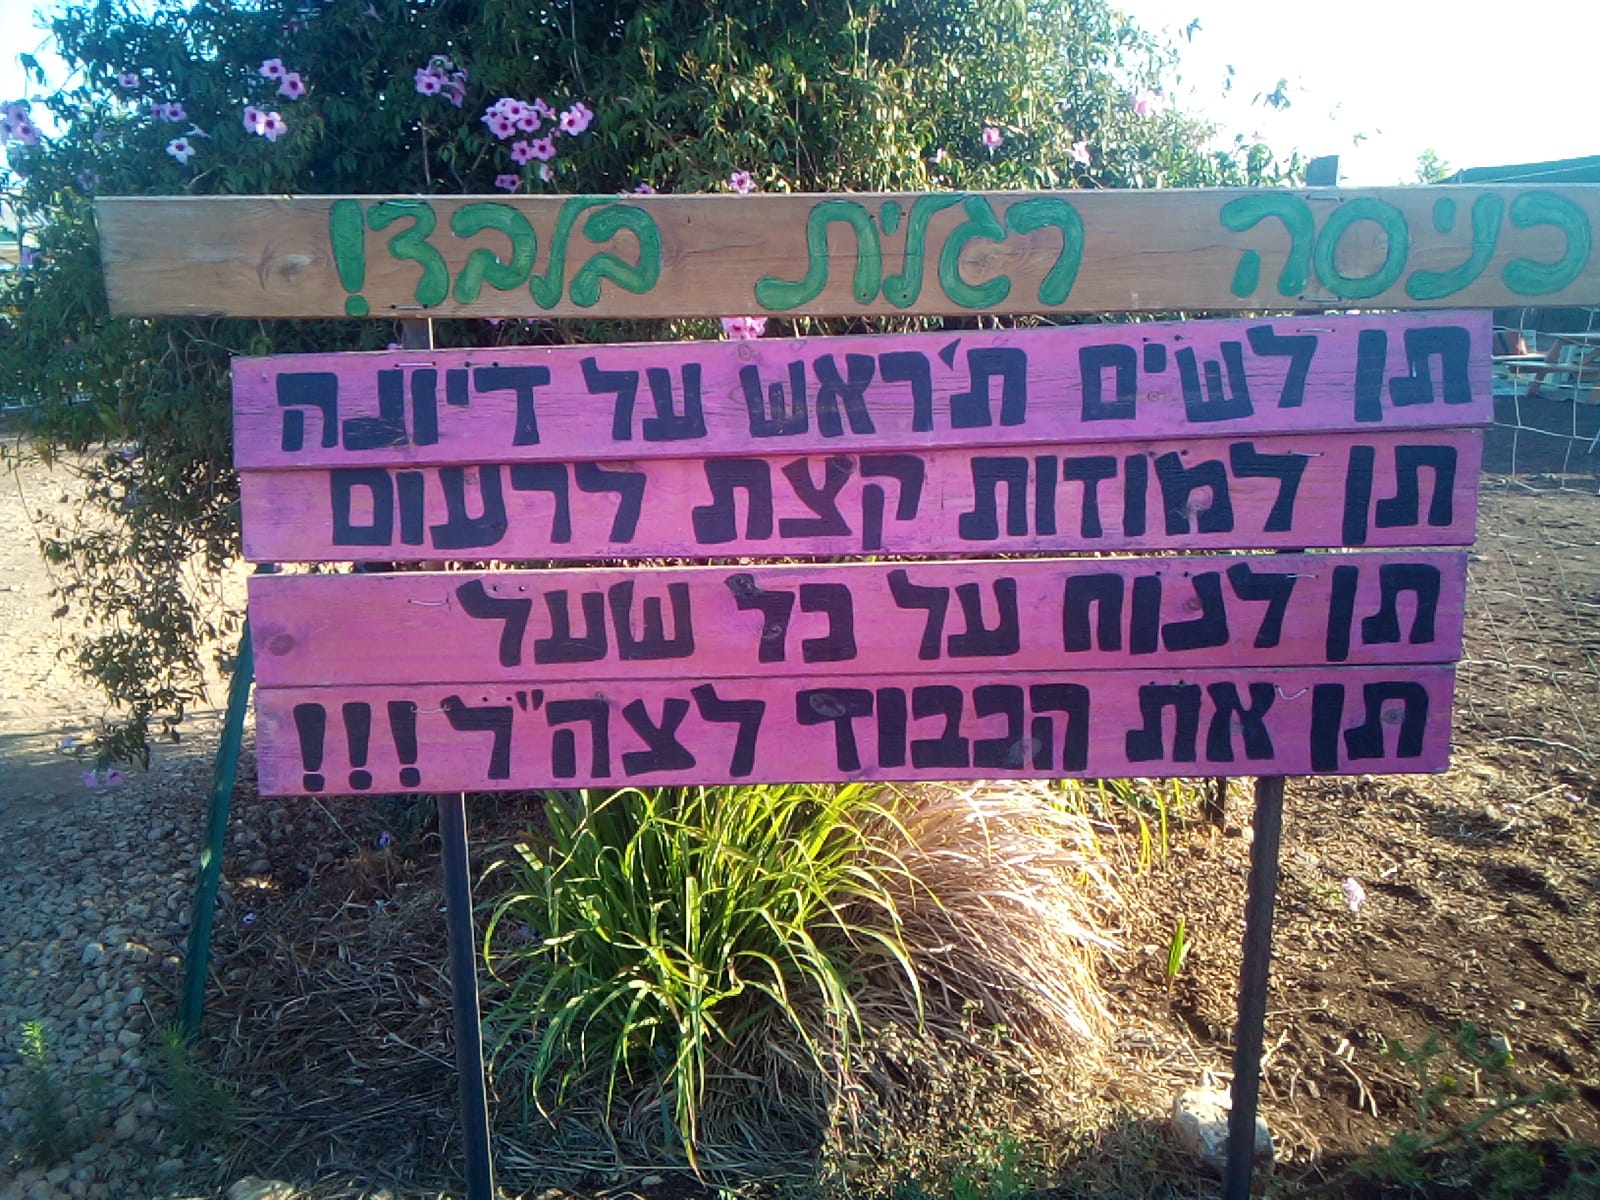 כניסה רגלית בלבד!
תן לשים ת'ראש על דיונה
תן למוזות קצת לרעום
תן לנוח על כל שעל
תן את הכבוד לצה"ל!!!